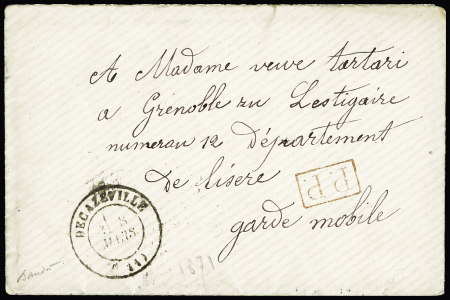 A Madame veuve tartari
a Grenoble ru Lestigaire
numerau 12 Département
De lisere
P.P.
garde mobile
DECAZEVILLE
8
MARS
(11)
1871